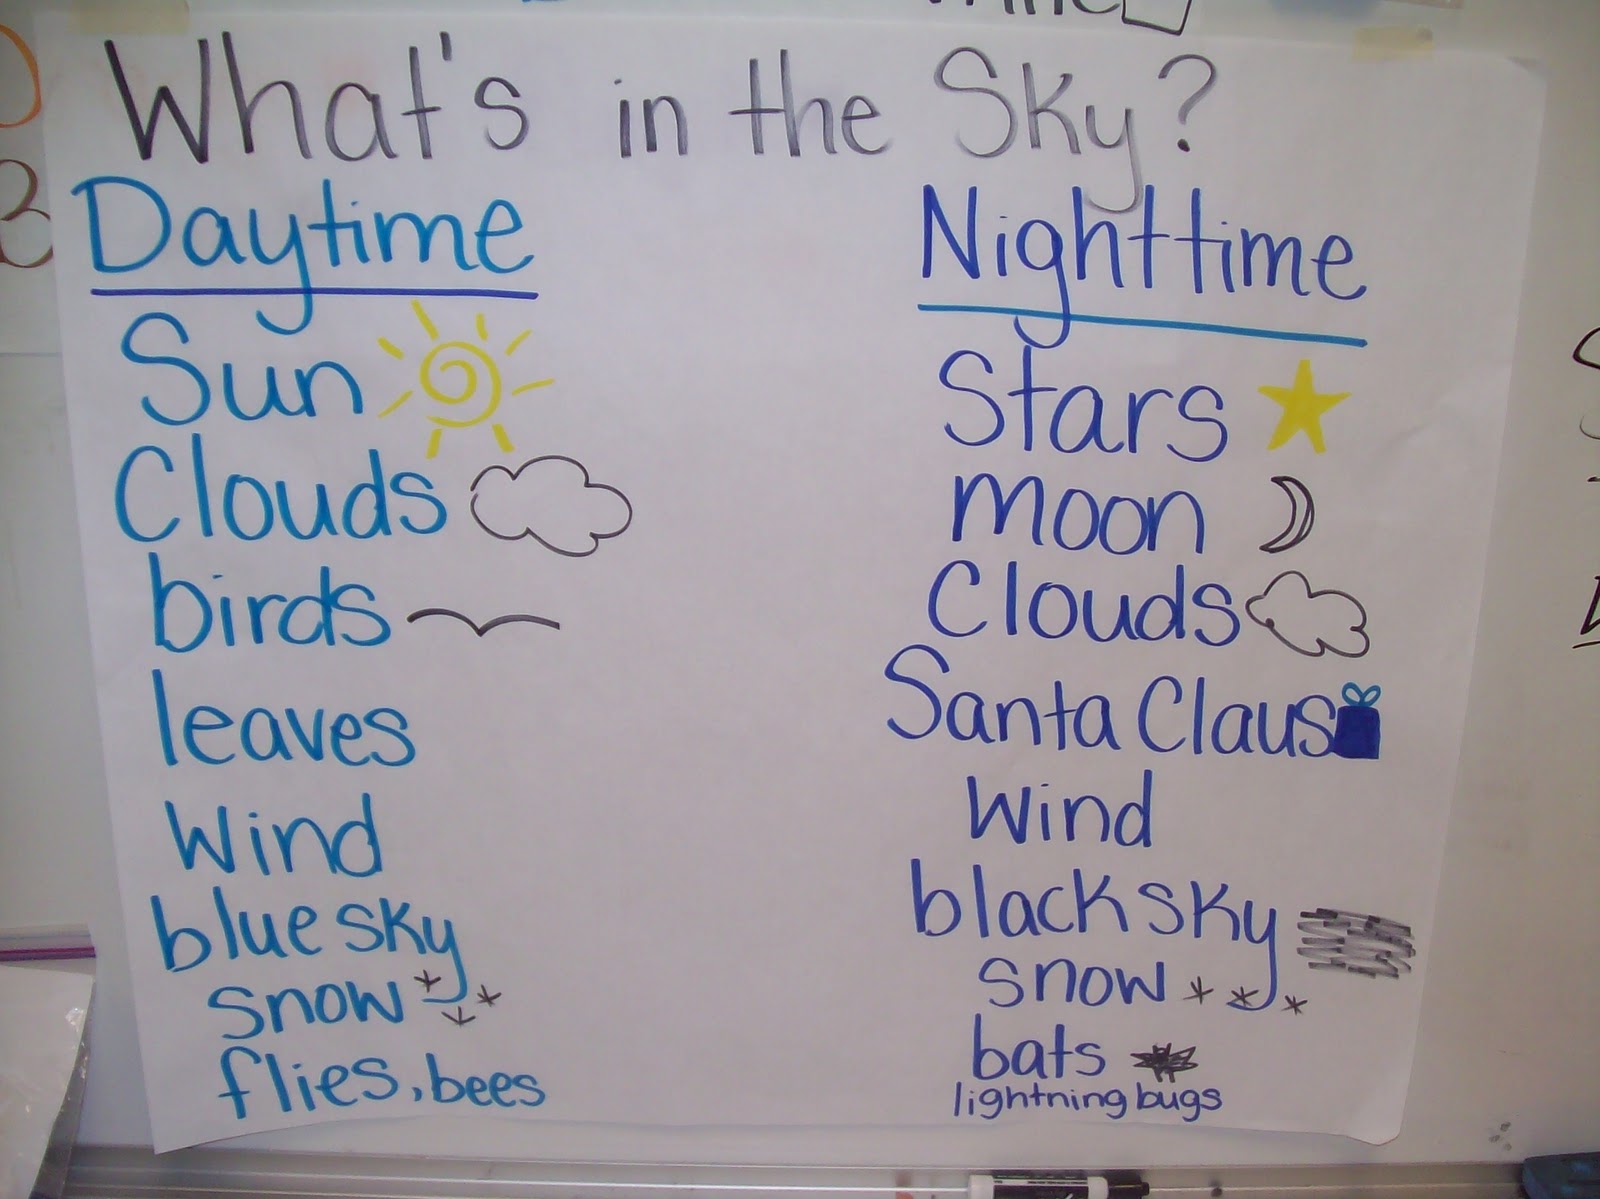 What's in the Sky?
Daytime
Sun
Clouds
birds
leaves
Wind
blue sky
snow
flies, bees
Nighttime
Stars
moon
Clouds
Santa Claus
Wind
black sky
snow
bats
lightning bugs